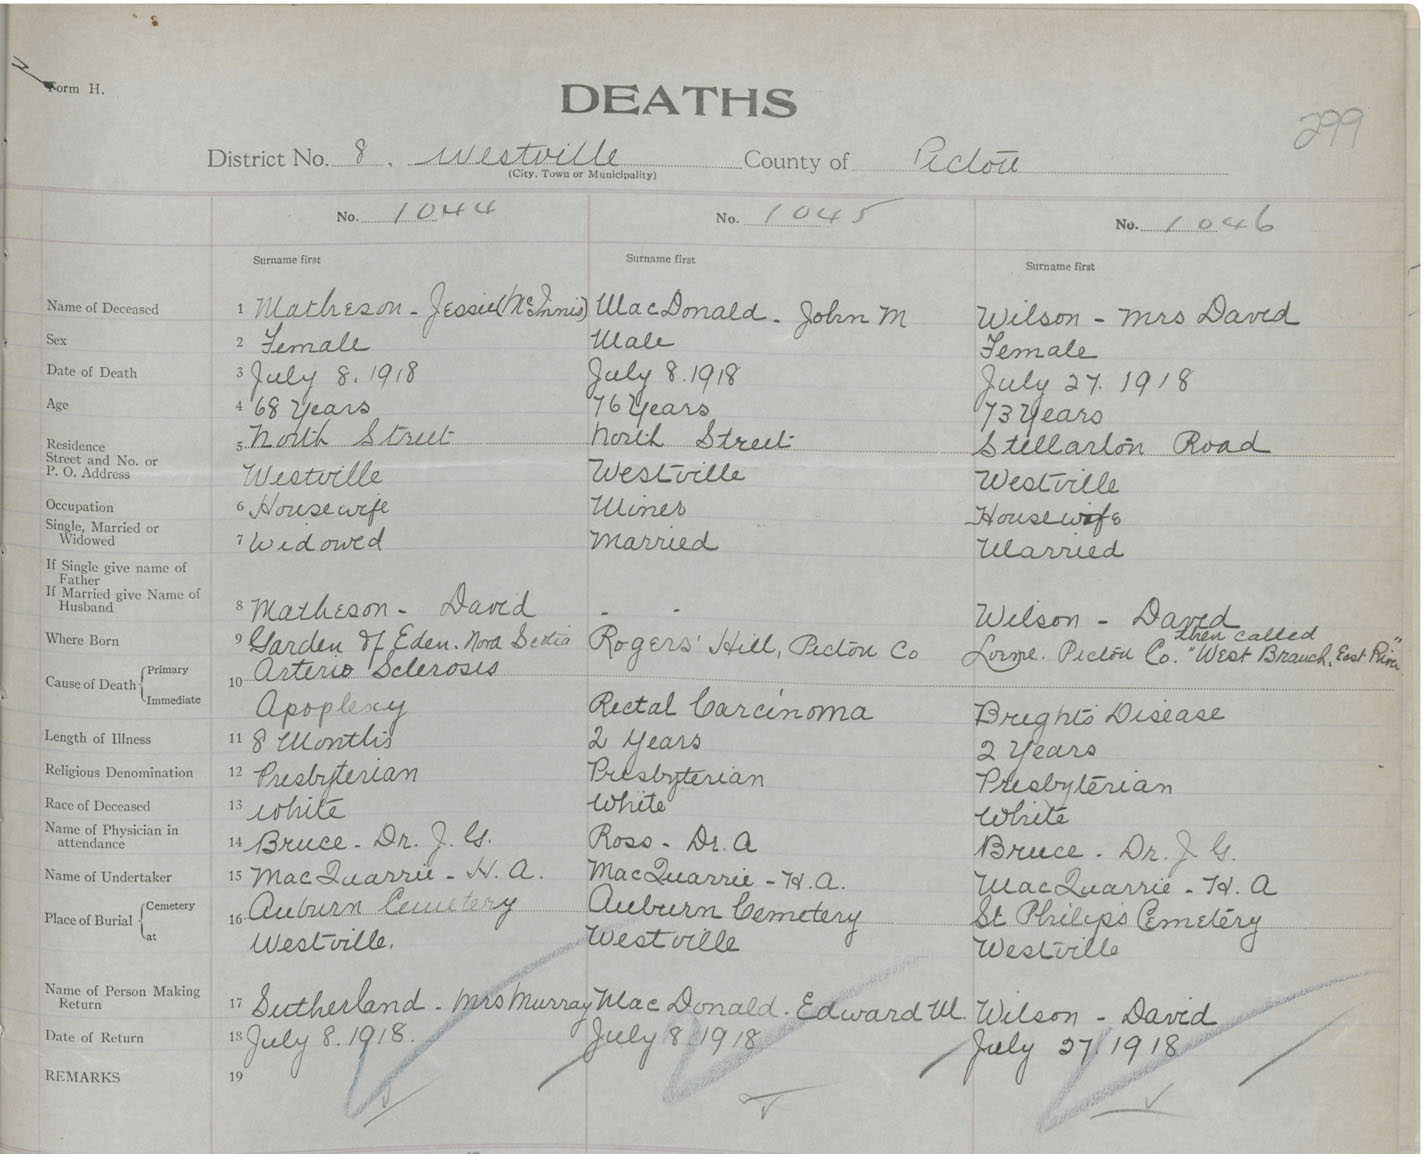 Form H.
DEATHS
299
District No. 8. Westville County of Pictou
(City, Town or Municipality)
No. 1044 No. 1045 No. 1046
Surname first Surname first Surname first
Name of Deceased 1 Matheson - Jessie (McInnis) MacDonald - John M Wilson - Mrs David
Sex 2 Female Male Female
Date of Death 3 July 8. 1918 July 8. 1918 July 27. 1918
Age 4 68 Years 76 Years 73 Years
Residence 5 North Street North Street Stellarton Road
Street and No. or
P. O. Address Westville Westville Westville
Occupation 6 Housewife Miner Housewife
Single, Married or
Widowed 7 Widowed Married Married
If Single give name of
Father
If Married give Name of
Husband 8 Matheson - David - - Wilson - David
then called
Where Born 9 Garden of Eden. Nova Scotia Rogers' Hill, Pictou Co Lorne. Pictou Co. "West Branch, East River"
Cause of Death Primary 10 Arterio Sclerosis
Immediate Apoplexy Rectal Carcinoma Brights Disease
Length of Illness 11 8 Months 2 Years 2 Years
Religious Denomination 12 Presbyterian Presbyterian Presbyterian
Race of Deceased 13 White White White
Name of Physician in
attendance 14 Bruce - Dr. J. G. Ross - Dr. A Bruce - Dr. J G.
Name of Undertaker 15 MacQuarrie - H. A. MacQuarrie - H. A. MacQuarrie - H. A
Place of Burial Cemetery 16 Auburn Cemetery Auburn Cemetery St Philips Cemetery
at Westville. Westville Westville
Name of Person Making
Return 17 Sutherland - Mrs Murray MacDonald - Edward M. Wilson - David
Date of Return 18 July 8. 1918. July 8. 1918 July 27. 1918
REMARKS 19